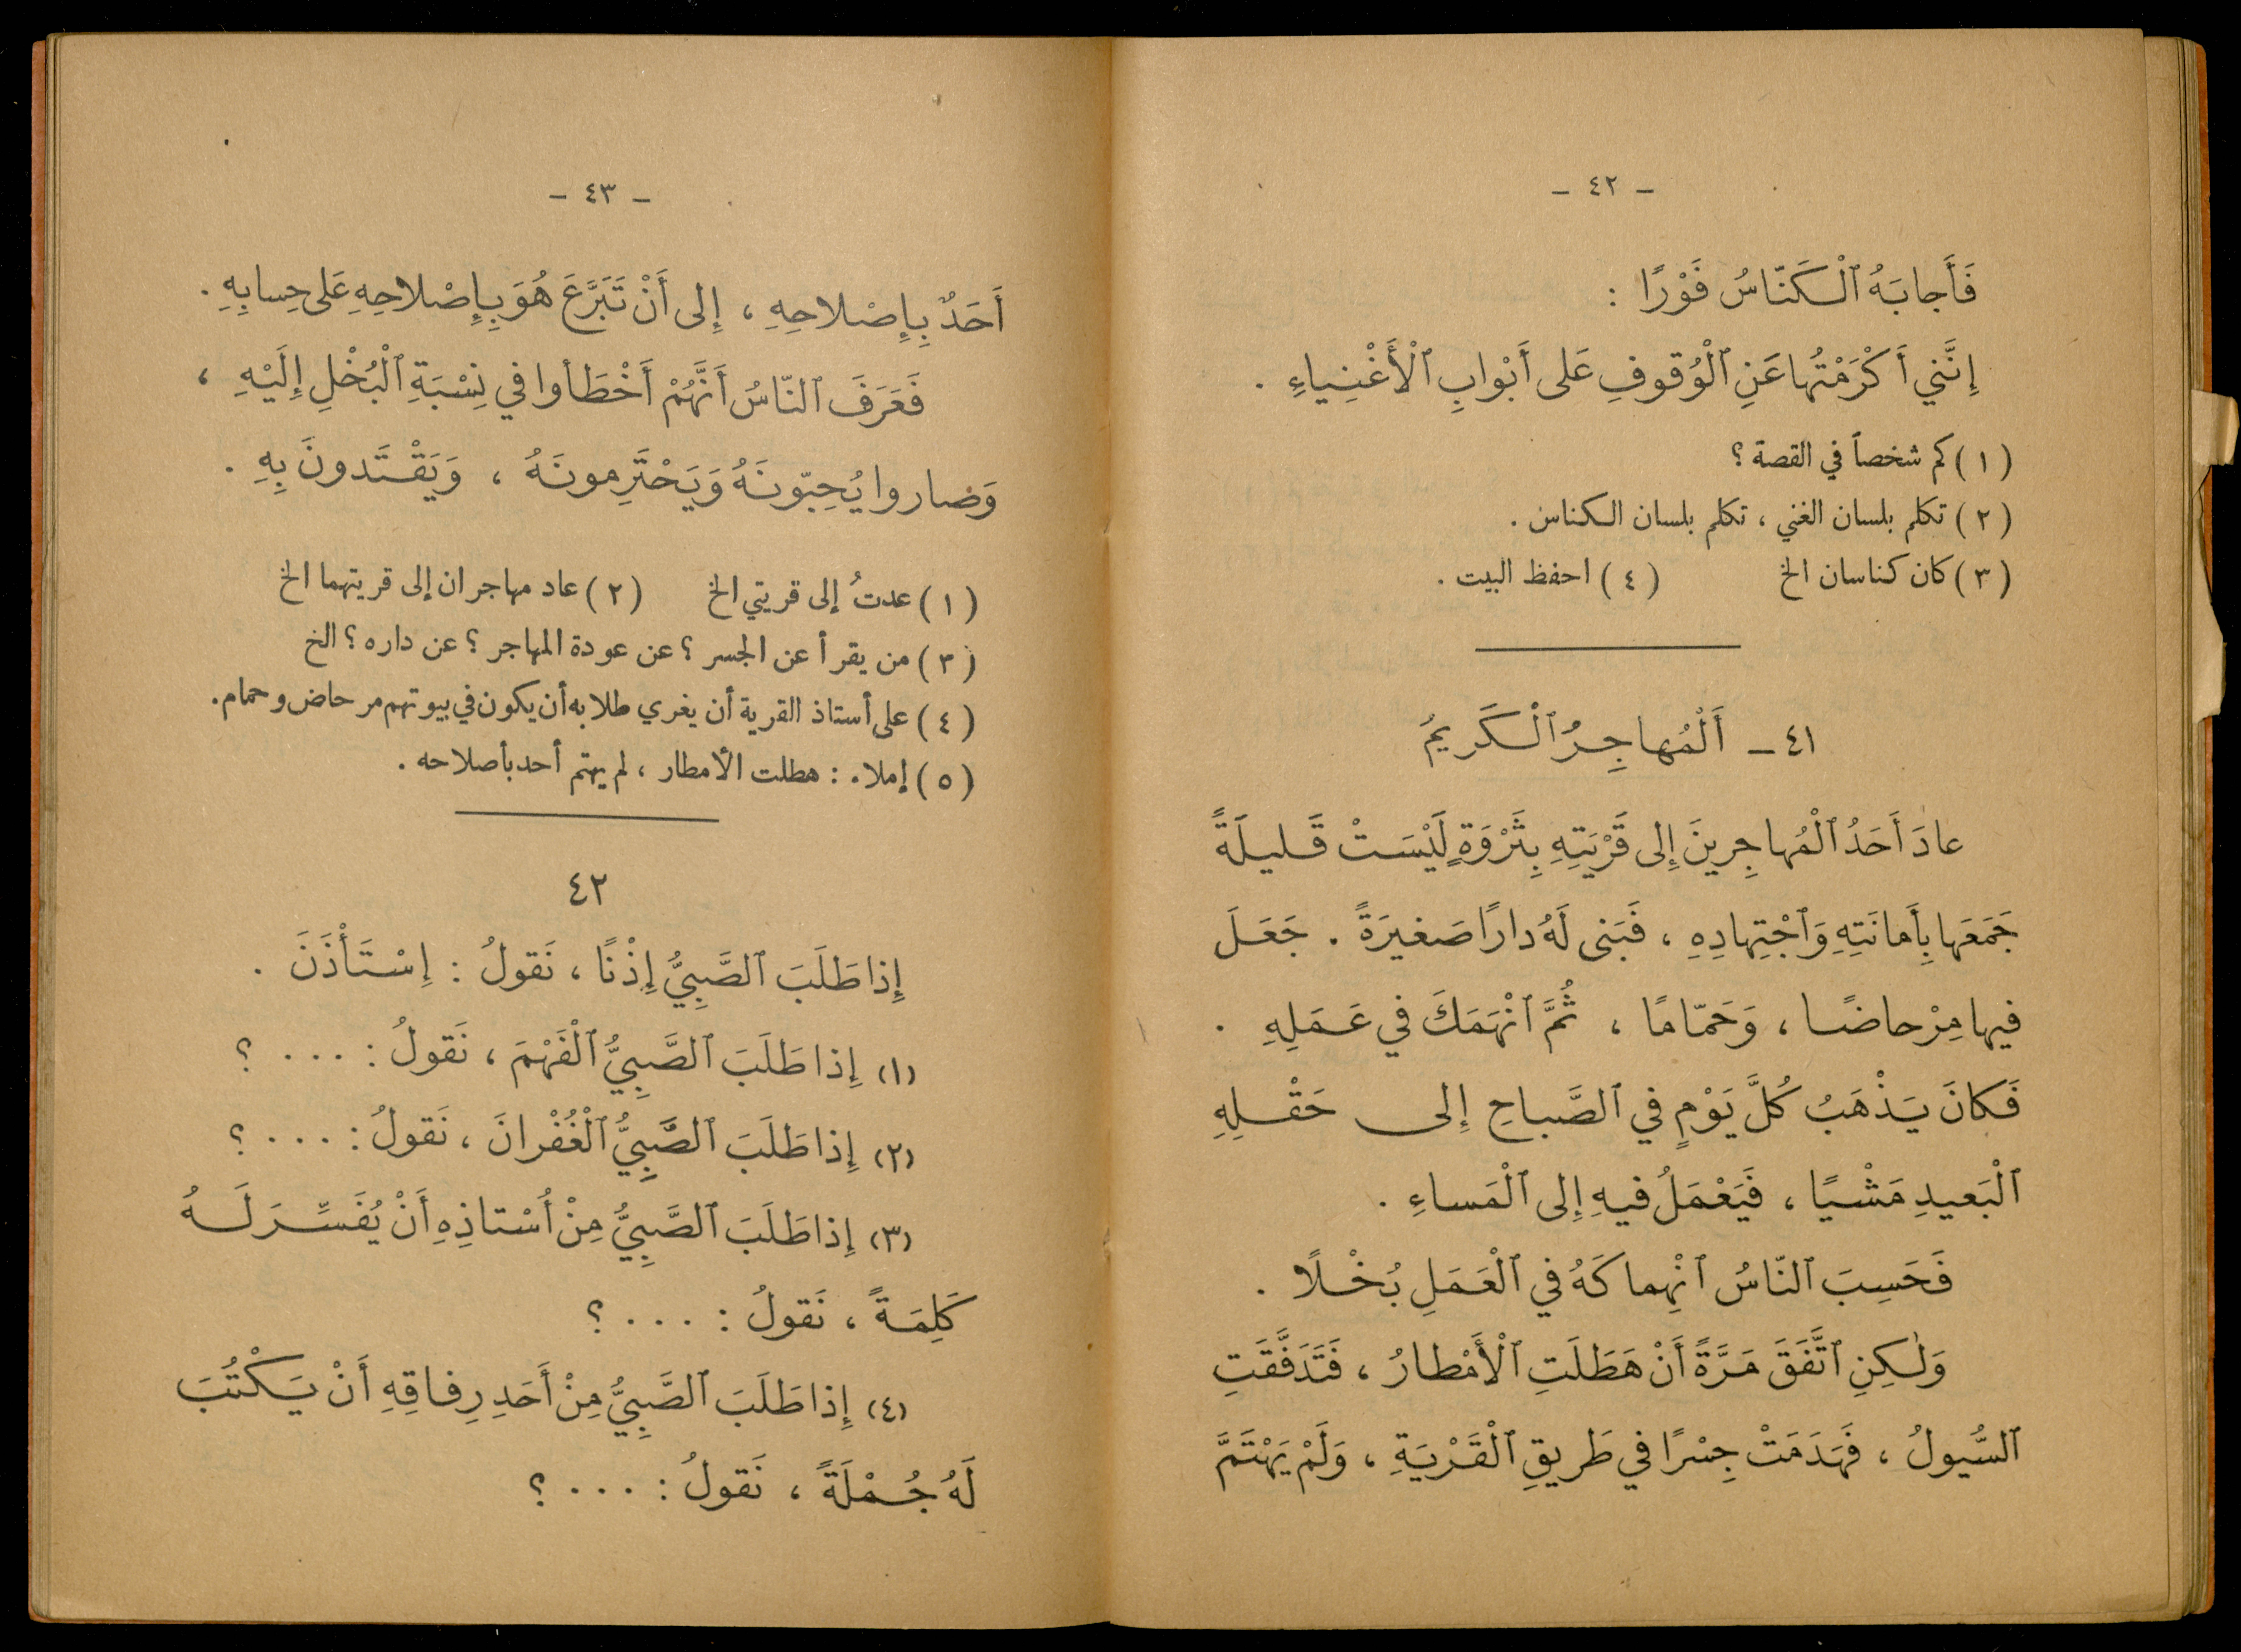 - ٤٢ -
فَأَجابَهُ ٱلْكَنّاسُ فَوْرًا :
إِنَّني أَكْرَمْتُها عَنِ ٱلْوُقوفِ عَلى أَبْوابِ ٱلْأَغْنِياءِ .
( ١ ) كم شخصاً في القصة ؟
( ٢ ) تكلم بلسان الغني ، تكلم بلسان الكناس .
( ٣ ) كان كناسان الخ ( ٤ ) احفظ البيت .
٤١ – أَلْمُهاجِرُ ٱلْكَريمُ
عادَ أَحَدُ ٱلْمُهاجِرينَ إِلى قَرْيَتِهِ بِثَرْوَةٍ لَيْسَتْ قَليلَةً
جَمَعَها بِأَمانَتِهِ وَٱجْتِهادِهِ ، فَبَنى لَهُ دارًا صَغيرَةً . جَعَلَ
فيها مِرْحاضًا ، وَحَمّامًا ، ثُمَّ ٱنْهَمَكَ في عَمَلِهِ .
فَكانَ يَذْهَبُ كُلَّ يَوْمٍ في ٱلصَّباحِ إِلى حَقْلِهِ
ٱلْبَعيدِ مَشْيًا ، فَيَعْمَلُ فيهِ إِلى ٱلْمَساءِ .
فَحَسِبَ ٱلنّاسُ ٱنْهِماكَهُ في ٱلْعَمَلِ بُخْلًا .
وَلٰكِنِ ٱتَّفَقَ مَرَّةً أَنْ هَطَلَتِ ٱلْأَمْطارُ ، فَتَدَفَّقَتِ
ٱلسُّيولُ ، فَهَدَمَتْ جِسْرًا في طَريقِ ٱلْقَرْيَةِ ، وَلَمْ يَهْتَمَّ
- ٤٣ -
أَحَدٌ بِإِصْلاحِهِ ، إِلى أَنْ تَبَرَّعَ هُوَ بِإِصْلاحِهِ عَلى حِسابِهِ .
فَعَرَفَ ٱلنّاسُ أَنَّهُمْ أَخْطَأوا في نِسْبَةِ ٱلْبُخْلِ إِلَيْهِ ،
وَصاروا يُحِبّونَهُ وَيَحْتَرِمونَهُ ، وَيَقْتَدونَ بِهِ .
( ١ ) عدتُ إلى قريتي الخ ( ٢ ) عاد مهاجران إلى قريتهما الخ
( ٣ ) من يقرأ عن الجسر ؟ عن عودة المهاجر ؟ عن داره ؟ الخ
( ٤ ) على أستاذ القرية أن يغري طلابه أن يكون في بيوتهم مرحاض وحمام .
( ٥ ) إملاء : هطلت الأمطار ، لم يهتم أحد بأصلاحه .
٤٢
إِذا طَلَبَ ٱلصَّبِيُّ إِذْنًا ، نَقولُ : إِسْتَأْذَنَ .
(١) إِذا طَلَبَ ٱلصَّبِيُّ ٱلْفَهْمَ ، نَقولُ : . . . ؟
(٢) إِذا طَلَبَ ٱلصَّبِيُّ ٱلْغُفْرانَ ، نَقولُ : . . . ؟
(٣) إِذا طَلَبَ ٱلصَّبِيُّ مِنْ أُسْتاذِهِ أَنْ يُفَسِّرَ لَهُ
كَلِمَةً ، نَقولُ : . . . ؟
(٤) إِذا طَلَبَ ٱلصَّبِيُّ مِنْ أَحَدِ رِفاقِهِ أَنْ يَكْتُبَ
لَهُ جُمْلَةً ، نَقولُ : . . . ؟